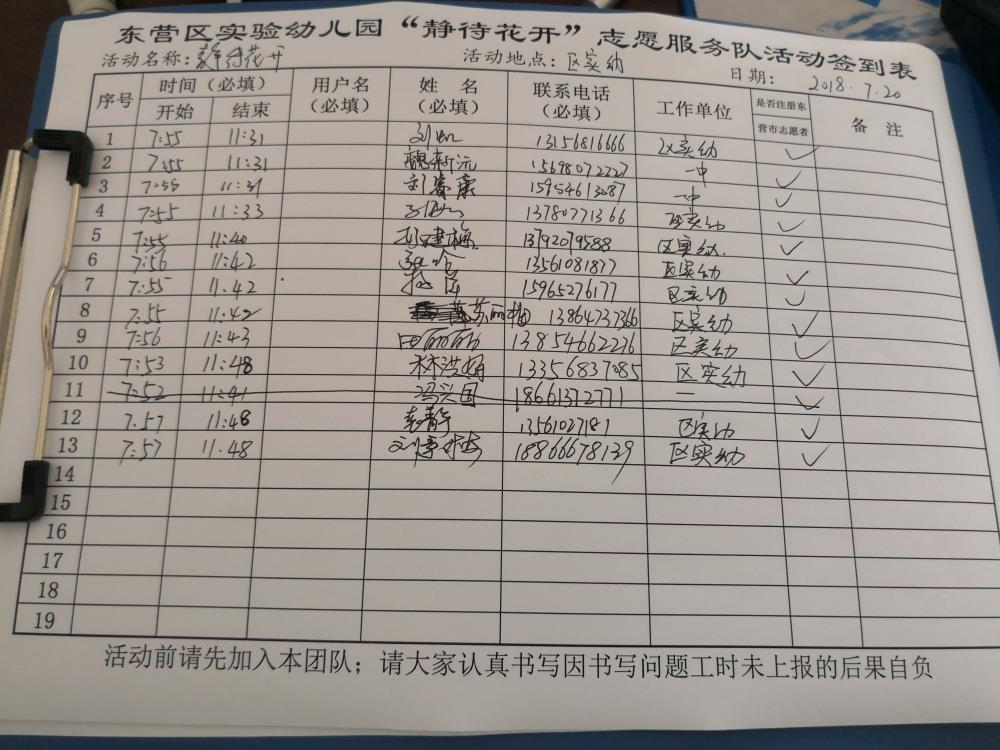 东营区实验幼儿园“静待花开”志愿服务队活动签到表
活动名称：静待花开 活动地点：区实幼 日期：2018.7.20
序号 时间（必填） 开始 结束 用户名（必填） 姓名（必填） 联系电话（必填） 工作单位 是否注册东营市志愿者 备注
1 7:55 11:31 13156816666 区实幼 ✓
2 7:55 11:31 魏新沅 15698072227 一中 ✓
3 7:55 11:31 一中 ✓
4 7:55 11:33 13780771366 区实幼 ✓
5 7:55 11:40 1392079588 区实幼 ✓
6 7:56 11:42 13561081877 区实幼 ✓
7 7:55 11:42 15965276177 区实幼 ✓
8 7:55 11:42 苏丽梅 13864737366 区实幼 ✓
9 7:56 11:43 田丽丽 13854662236 区实幼 ✓
10 7:53 11:48 林洪娟 13356837085 区实幼 ✓
11 7:52 11:41 冯兴国 18661372771 — ✓
12 7.57 11:48 袁静 13561027181 区实幼 ✓
13 7:57 11.48 18866678139 区实幼 ✓
14
15
16
17
18
19
活动前请先加入本团队；请大家认真书写因书写问题工时未上报的后果自负